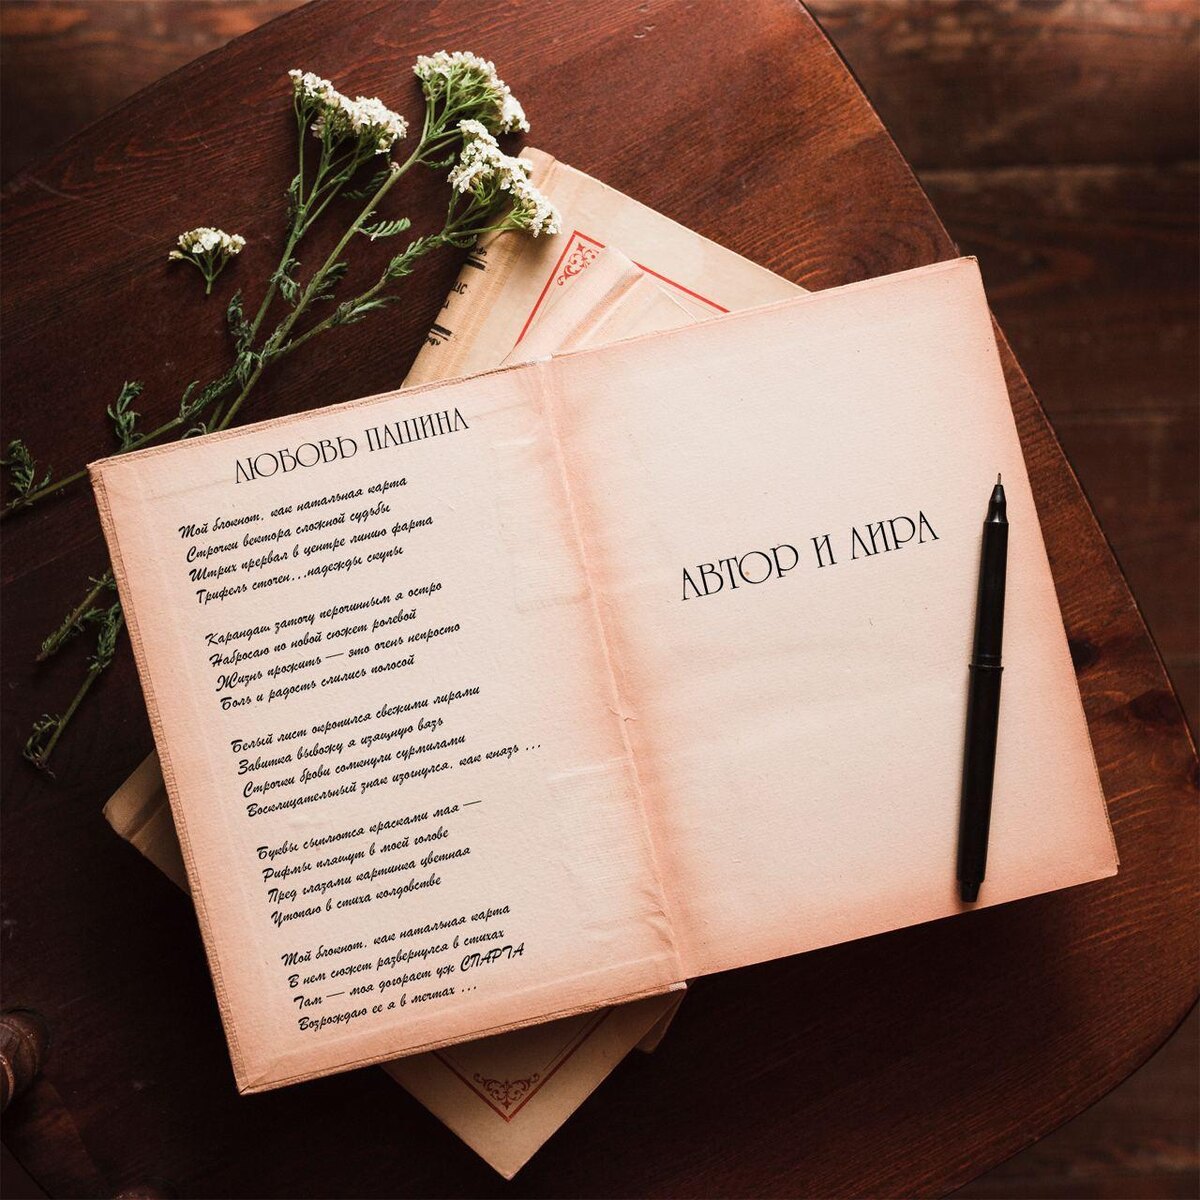 ЛЮБОВЬ ПАШИНА
Мой блокнот, как натальная карта
Строчки вектора сложной судьбы
Штрих прервал в центре линию фарта
Трифель сточен...надежды скупы
Карандаш заточу перочинным я остро
Набросаю по новой сюжет ролевой
Жизнь прожить — это очень непросто
Боль и радость слились полосой
Белый лист окропился свежими лирами
Завитка вывожу я изящную вязь
Строчки брови сомкнули сурмилами
Восклицательный знак изогнулся, как князь ...
Буквы сыплются красками мая —
Рифмы пляшут в моей голове
Пред глазами картинка цветная
Утопаю в стиха колдовстве
Мой блокнот, как натальная карта
В нем сюжет развернулся в стихах
Там — моя догорает уж СПАРТА
Возрождаю ее я в мечтах ...
АВТОР И ЛИРА